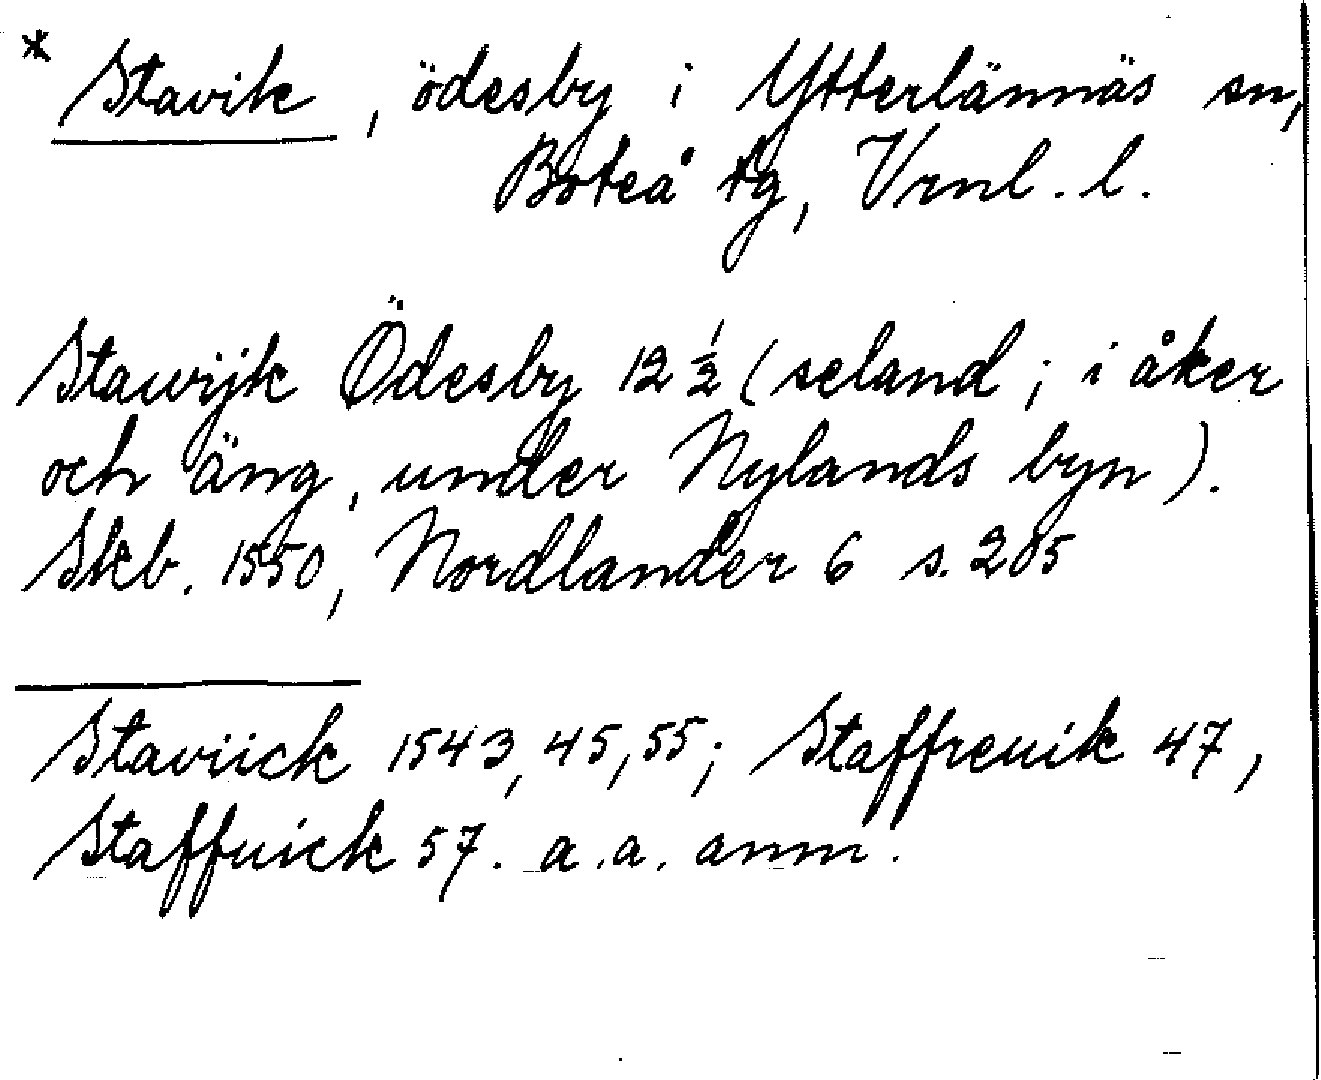 * Stavik, ödesby i Ytterlännäs sn,
Boteå tg, Vrnl. l.
Stawijk Ödesby 12 ½ (seland; i åker
och äng, under Nylands byn).
Skb. 1550, Nordlander 6 s. 205
Staviick 1543, 45, 55; Staffreuik 47,
Staffuick 57. a.a. anm.